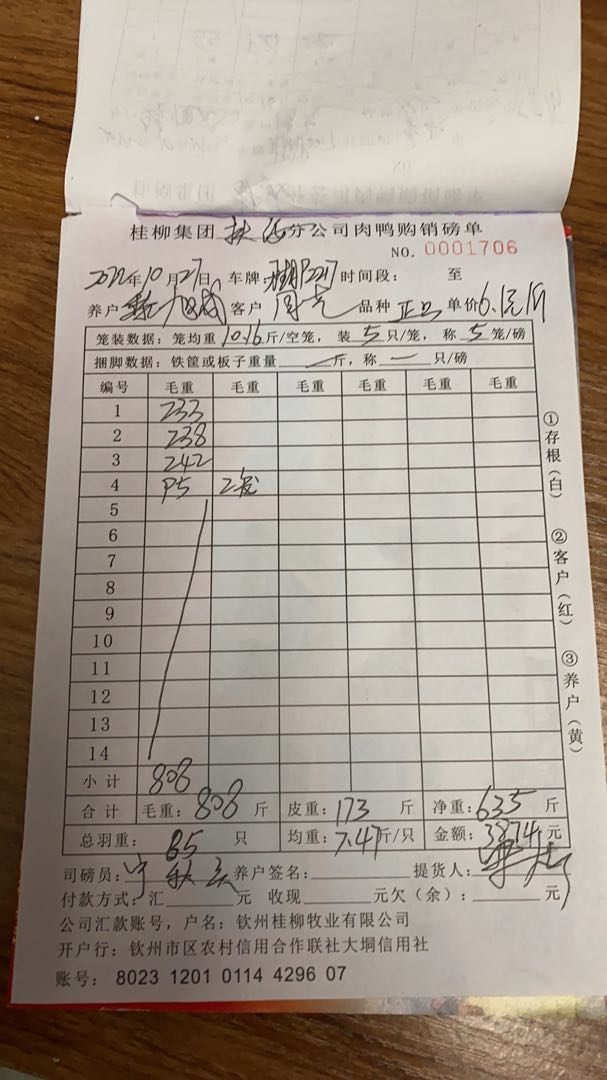 桂柳集团扶绥分公司肉鸭购销磅单
NO. 0001706
2022年10月27日 车牌: 时间段: 至
养户 客户 周亮 品种 正品 单价 6.1元/斤
笼装数据：笼均重10.16斤/空笼，装5只/笼，称5笼/磅
捆脚数据：铁筐或板子重量一斤，称一只/磅
编号 毛重 毛重 毛重 毛重 毛重 毛重
1 233
2 238
3 242
4 95 2笼
5
6
7
8
9
10
11
12
13
14
小计 808
合计 毛重：808斤 皮重：173斤 净重：635斤
总羽重：85只 均重：7.47斤/只 金额：3874元
司磅员： 养户签名： 提货人：
付款方式：汇 元 收现 元欠（余）： 元
公司汇款账号，户名：钦州桂柳牧业有限公司
开户行：钦州市区农村信用合作联社大垌信用社
账号：8023 1201 0114 4296 07
①存根（白）
②客户（红）
③养户（黄）